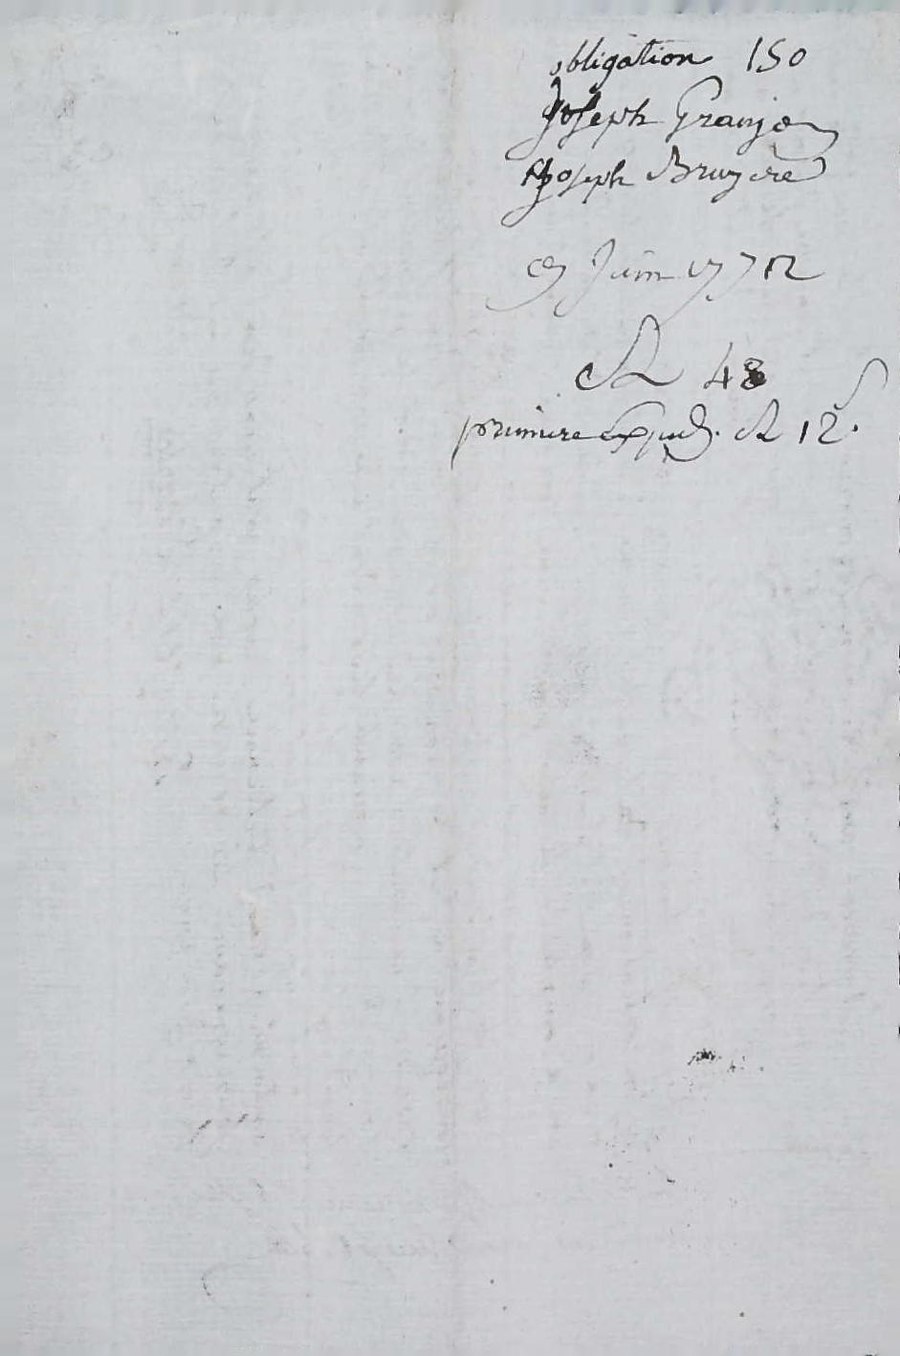 obligation 150
Joseph Granjon
Joseph Bruyere
9 Juin 1772
Rt 48
premiere Exped. Rt 12 s.